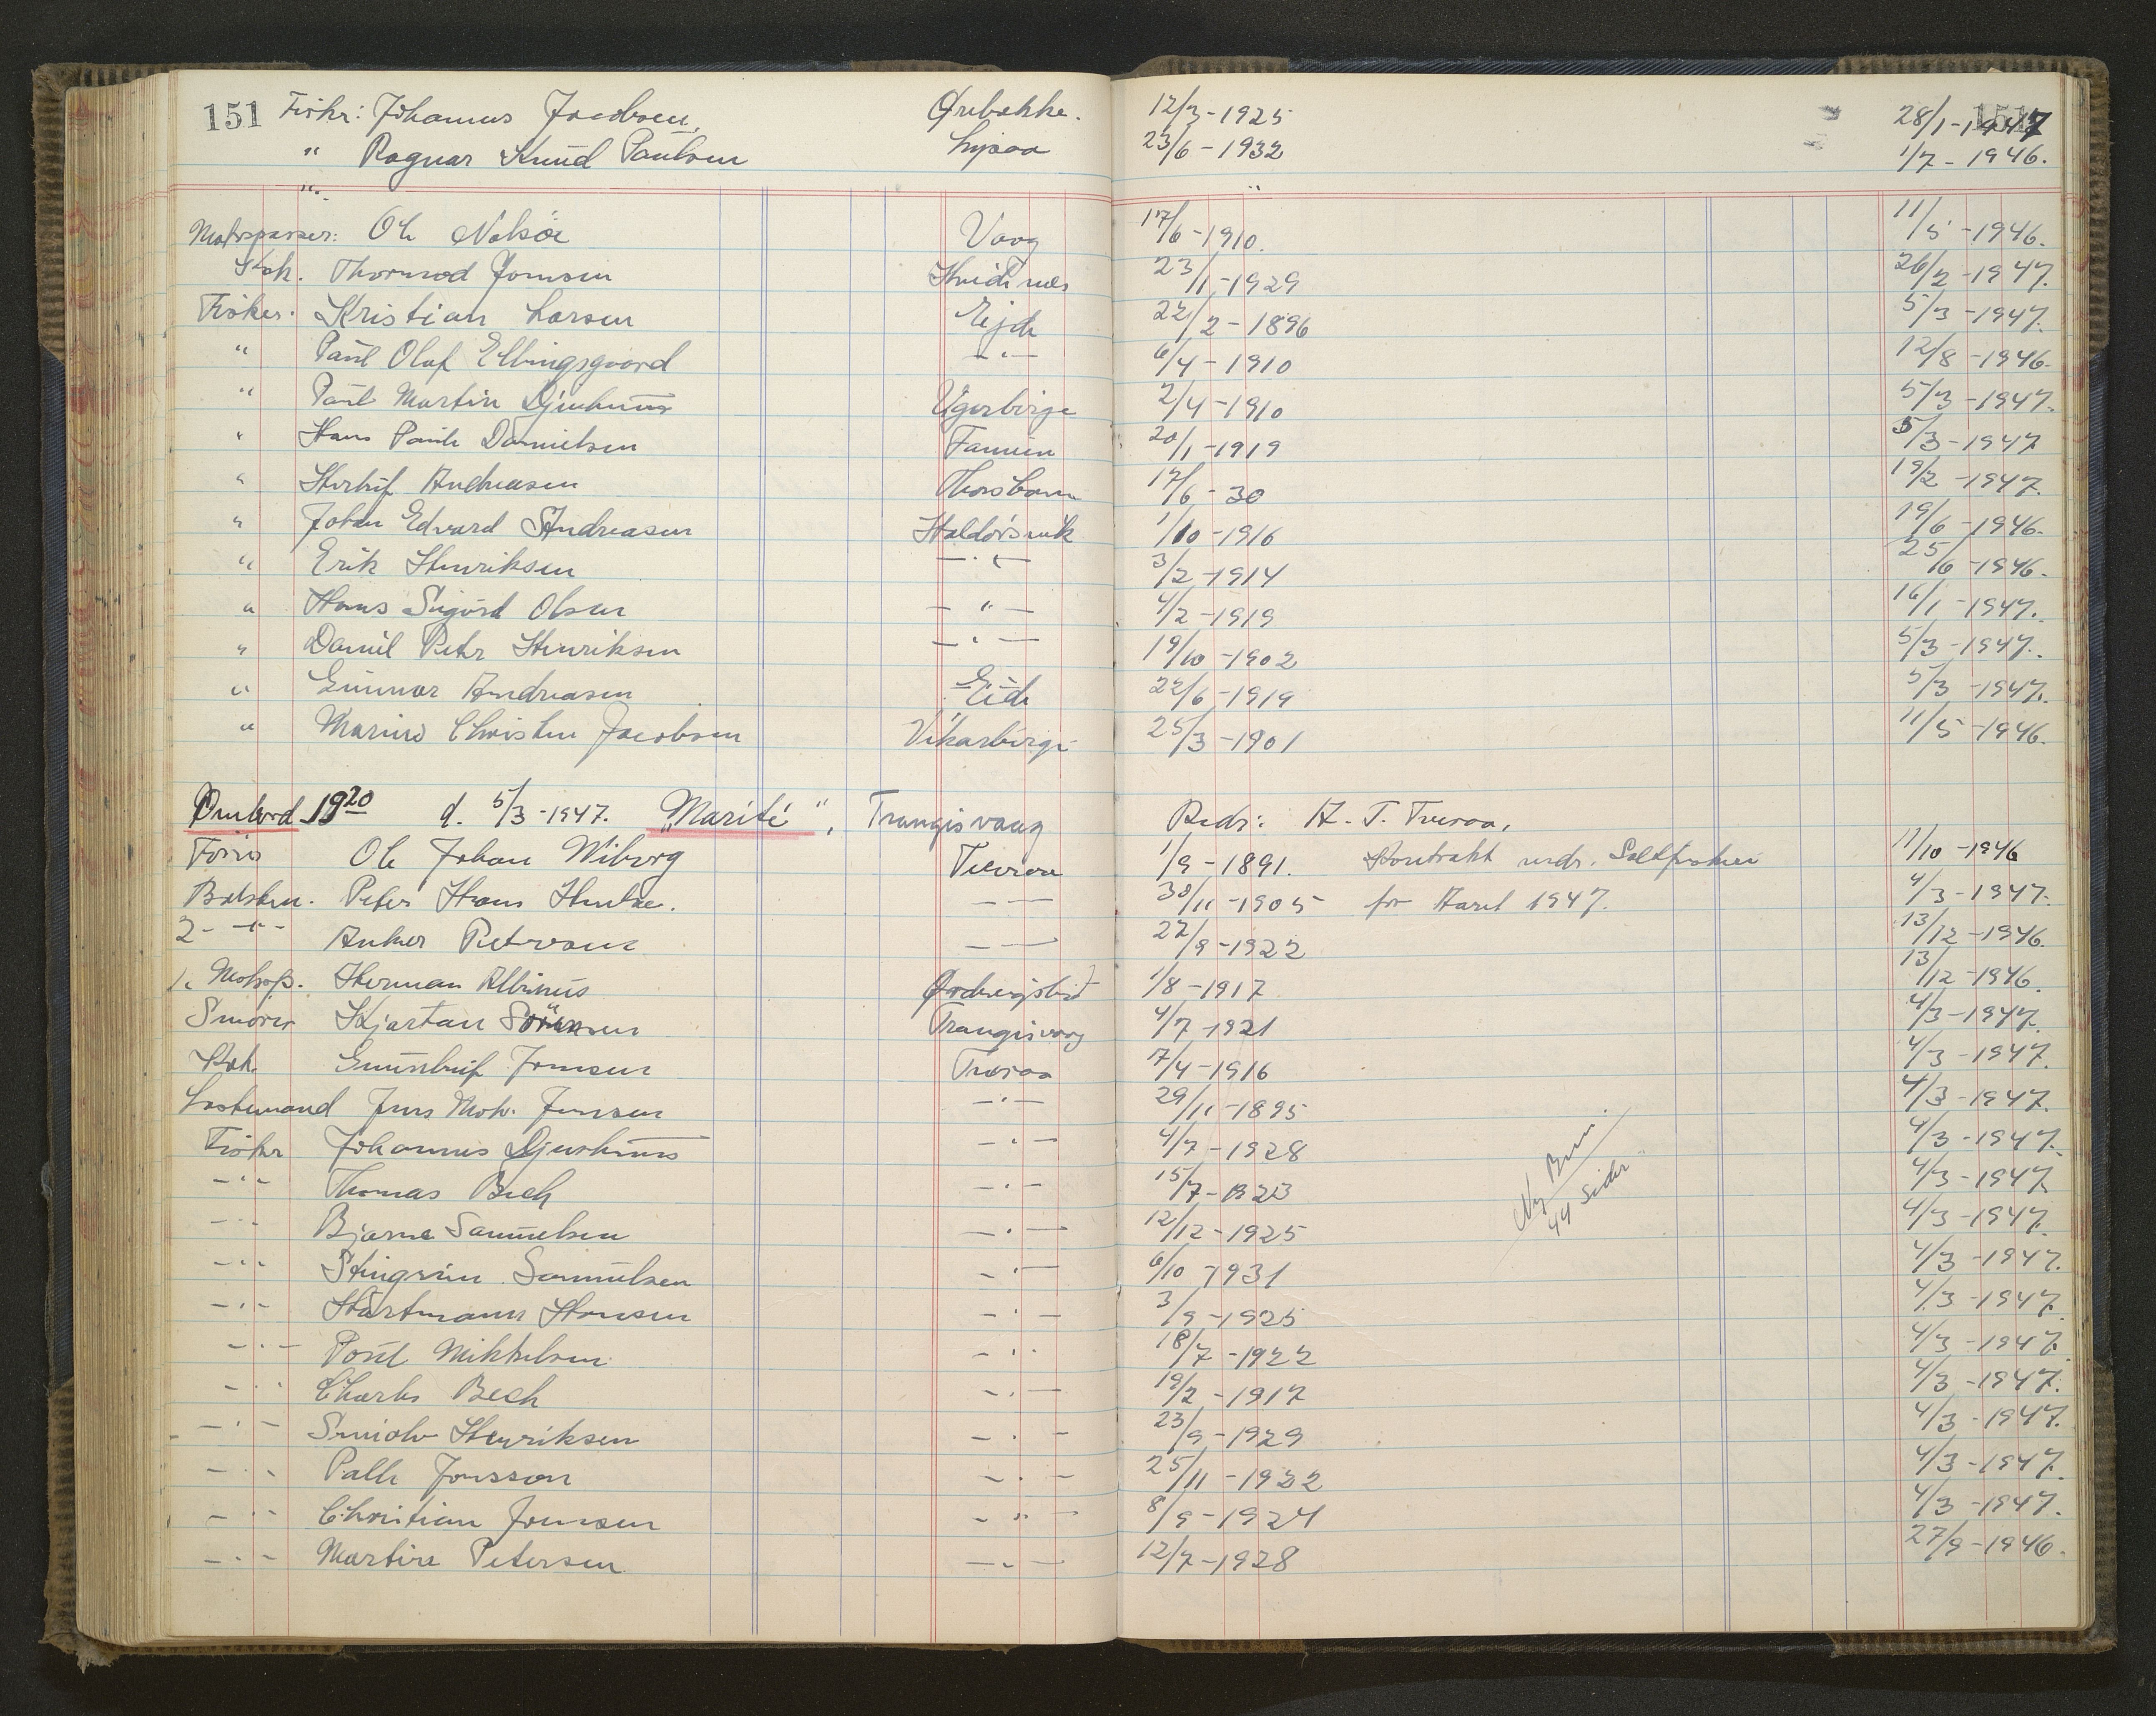 151 Fisker: Johannes Jacobsen. Ørebakke. 12/3-1925 28/1-1947 151
" Ragnar Knud Paulsen Lysaa 23/6-1932 1/7-1946.
". "
Motorpasser: Ole Nolsöe Vaag 17/6-1910. 11/5-1946.
Kok. Thormod Joensen Hvidenæs 23/1-1929 26/2-1947.
Fisker. Kristian Larsen Ejde 22/2-1896 5/3-1947.
" Paul Olaf Ellingsgaard -"- 6/4-1910 12/8-1946.
" Paul Martin Djurhuus 2/4-1910 5/3-1947.
" Hans Pauli Danielsen Famien 20/1-1919 5/3-1947
" Herleif Andreasen Thorshavn 17/6-30 19/2-1947.
" Johan Edvard Andreasen Haldórsvik 1/10-1916 19/6-1946.
" Erik Henriksen -"- 3/2-1914 25/6-1946.
" Hans Sigurd Olsen -"- 4/2-1919 16/1-1947.
" Daniel Peter Henriksen -"- 19/10-1902 5/3-1947.
" Gunnar Andreasen Eide 22/6-1919 5/3-1947.
" Marius Christen Jacobsen Vikarbirgi 25/3-1901 11/5-1946.
Ombord 1920 d. 5/3-1947. "Marité", Trangisvaag Reder: A. T. Tveraa.
Fører Ole Johan Wiborg Tveraa 1/9-1891. Kontrakt vedr. Saltfiskeri 11/10-1946
Bedstem. Peter Hans Hentze. -"- 30/11-1905 for Aaret 1947. 4/3-1947.
2- -"- Anker Petersen -"- 27/9-1922 13/12-1946.
1. Motorp. Herman Albinus 1/8-1917 13/12-1946.
Smører Kjartan Sörensen Trangisvaag 4/7-1921 4/3-1947.
Kok Gunnleif Joensen Tveraa 7/4-1916 4/3-1947.
Lastemand Jens Mor. Jensen -"- 29/11-1895 4/3-1947.
Fisker Johannes Djurhuus -"- 4/7-1928 4/3-1947.
-"- Thomas Bech -"- 15/7-1923 4/3-1947
-"- Bjarne Samuelsen -"- 12/12-1925 4/3-1947.
Ny
44 Sider
-"- Steingrim Samuelsen -"- 6/10-1931 4/3-1947.
-"- Hartmann Hansen -"- 3/9-1925 4/3-1947
-"- Poul Mikkelsen -"- 18/7-1922 4/3-1947
-"- Charles Bech -"- 19/2-1917 4/3-1947.
-"- Henriksen -"- 23/9-1929 4/3-1947.
-"- Palle Jonsson -"- 25/11-1922 4/3-1947.
-"- Christian Joensen -"- 8/9-1924 4/3-1947.
-"- Martin Petersen -"- 12/7-1928 27/9-1946.